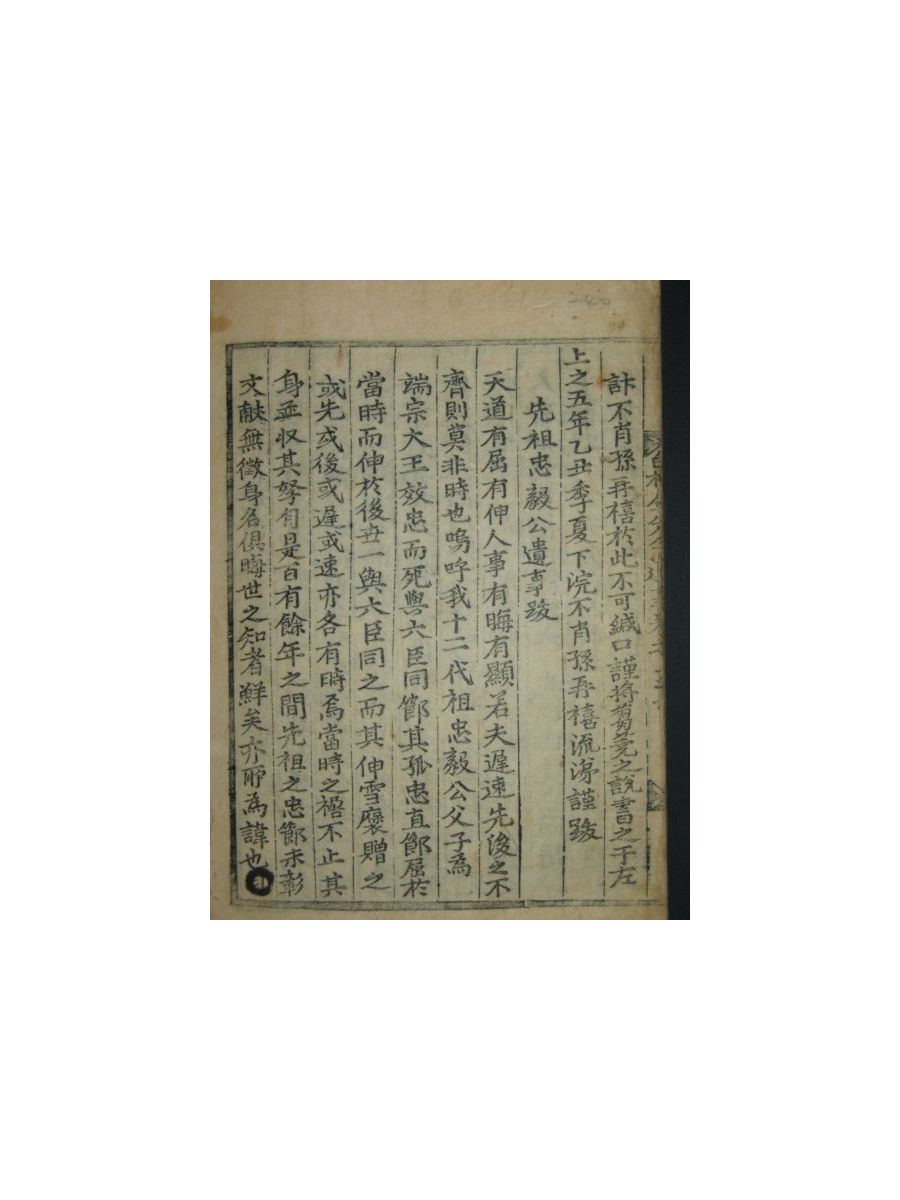 訃不肖孫再禧於此不可緘口謹將蒭蕘之說書之于左
上之五年乙丑季夏下浣不肖孫再禧流涕謹跋
先祖忠毅公遺事跋
天道有屈有伸人事有晦有顯若夫遲速先後之不
齊則莫非時也嗚呼我十二代祖忠毅公父子爲
端宗大王效忠而死與六臣同節其孤忠直節屈於
當時而伸於後世一與六臣同之而其伸雪褒贈之
或先或後或遲或速亦各有時焉當時之禍不止其
身並收其孥自是百有餘年之間先祖之忠節未彰
文献無徵身名俱晦世之知者鮮矣亦所爲諱也